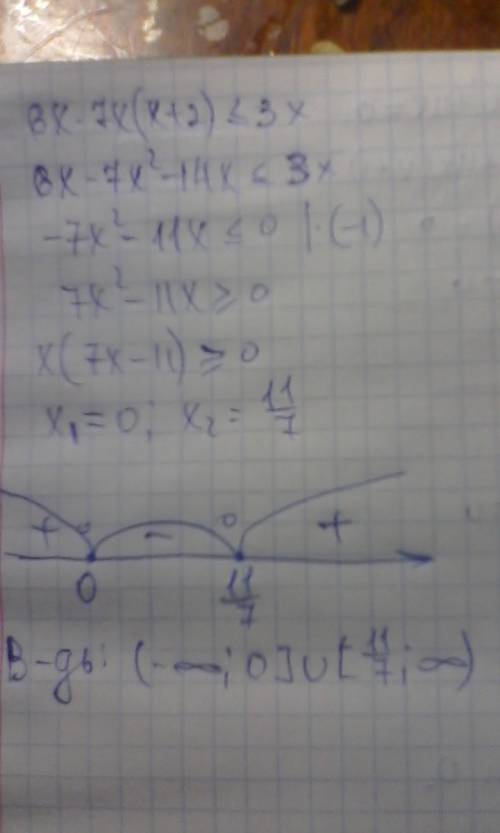 8x-7x(x+2)≤3x
8x-7x²-14x≤3x
-7x²-11x≤0 |·(-1)
7x²-11x≥0
x(7x-11)≥0
x₁=0; x₂=11/7
+ - +
0 11/7
В-дь: (-∞; 0]∪[11/7; ∞)